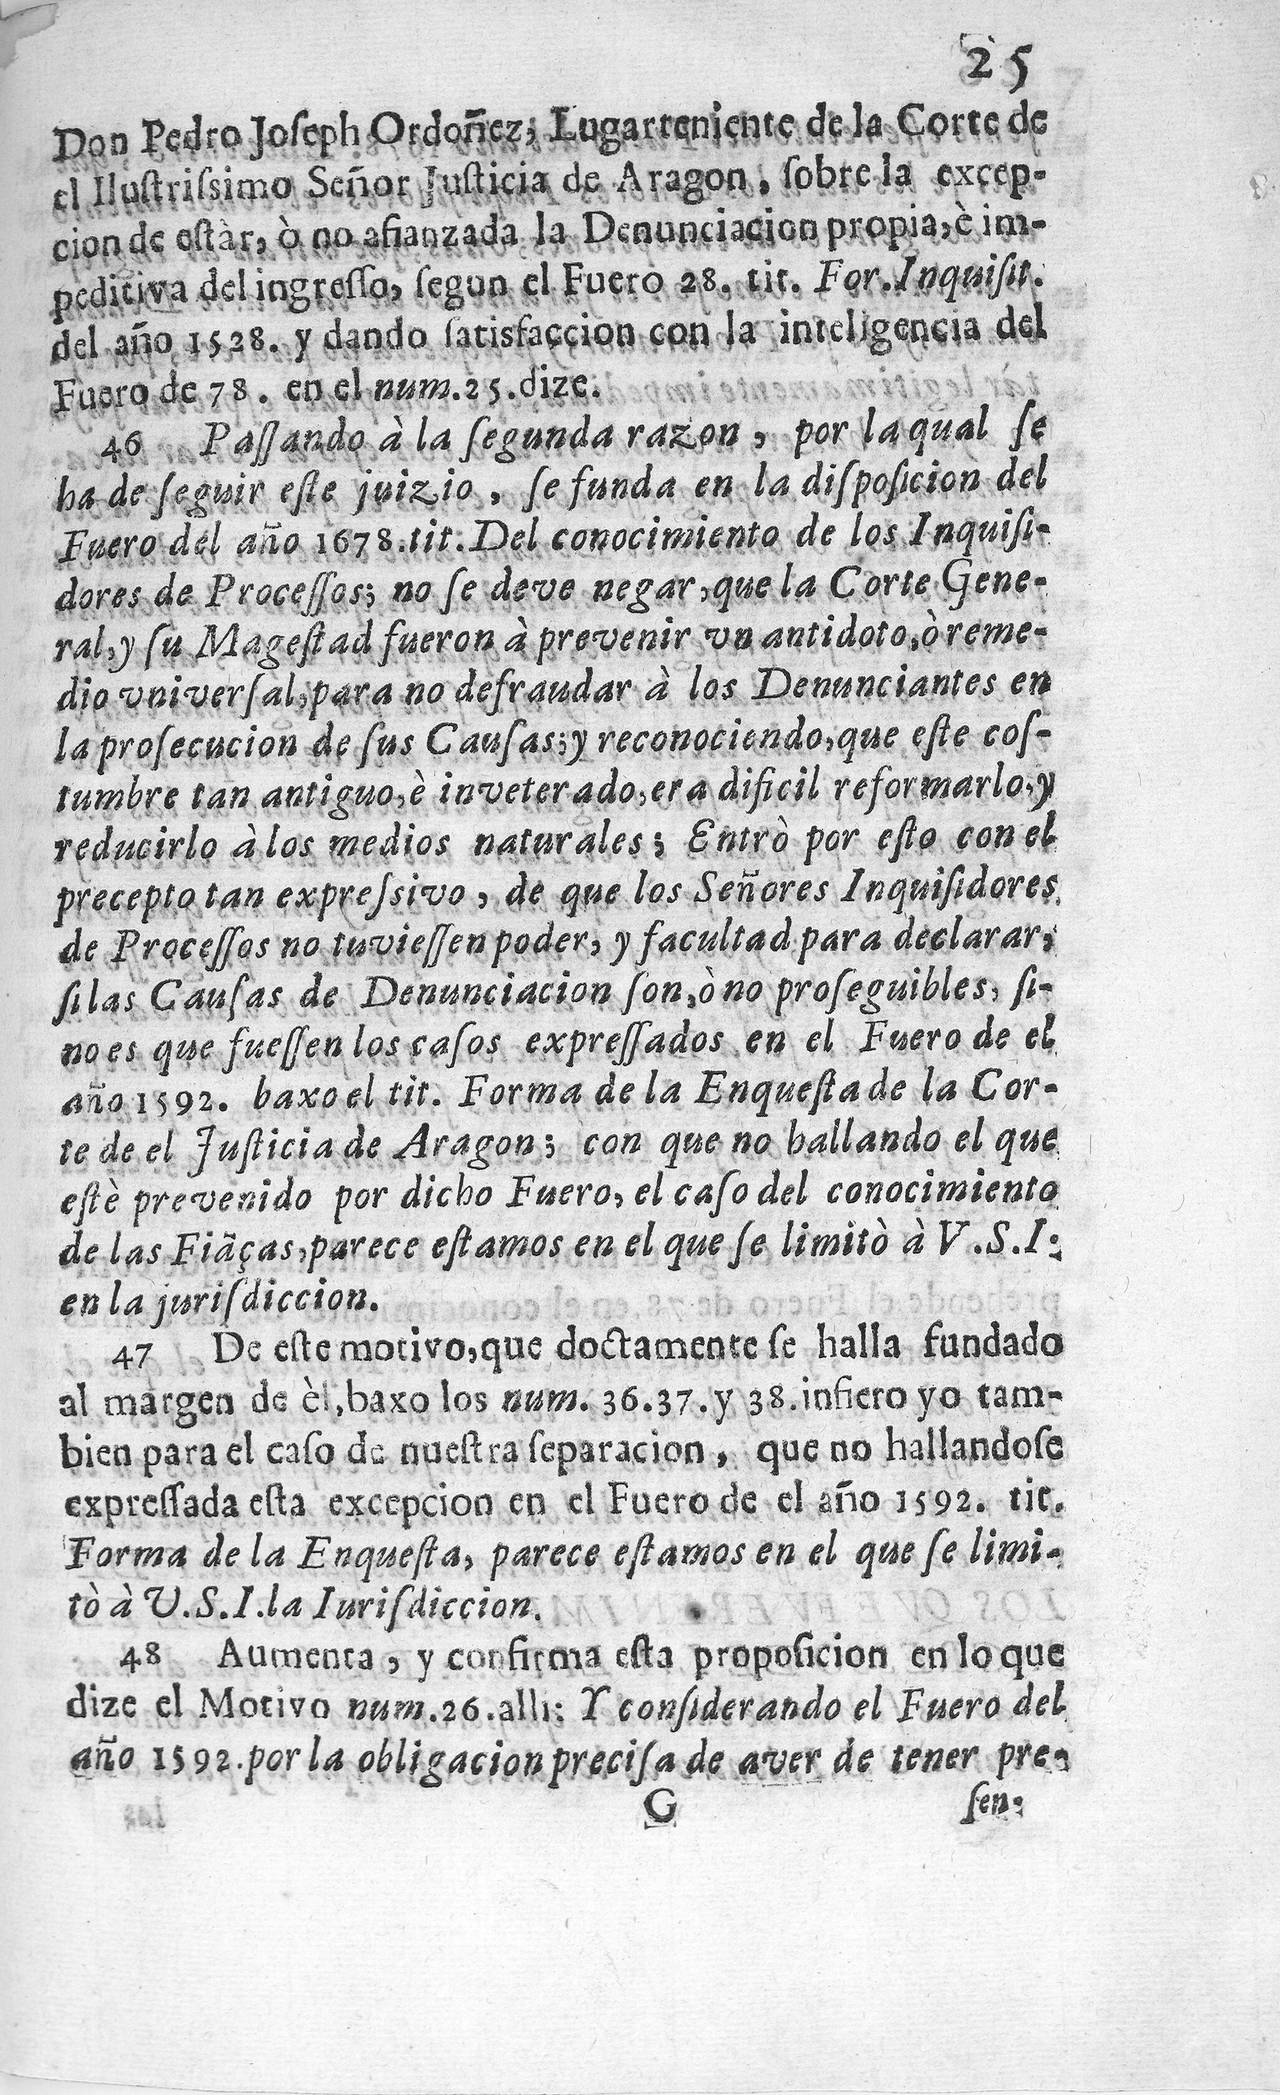 25
Don Pedro Joſeph Ordoñez, Lugarteniente de la Corte de
el Iluſtriſsimo Señor Juſticia de Aragon, ſobre la excep-
cion de eſtàr, ò no afianzada la Denunciacion propia, è im-
peditiva del ingreſſo, ſegun el Fuero 28. tit. For. Inquiſit.
del año 1528. y dando ſatisfaccion con la inteligencia del
Fuero de 78. en el num. 25. dize.
46 Paſſando à la ſegunda razon, por la qual ſe
ha de ſeguir eſte juizio, ſe funda en la diſpoſicion del
Fuero del año 1678. tit. Del conocimiento de los Inquiſi-
dores de Proceſſos; no ſe deve negar, que la Corte Gene-
ral, y ſu Mageſtad fueron à prevenir vn antidoto, ò reme-
dio vniverſal, para no defraudar à los Denunciantes en
la proſecucion de ſus Cauſas; y reconociendo, que eſte coſ-
tumbre tan antiguo, è inveterado, era dificil reformarlo, y
reducirlo à los medios naturales; Entrò por eſto con el
precepto tan expreſsivo, de que los Señores Inquiſidores
de Proceſſos no tuvieſſen poder, y facultad para declarar,
ſi las Cauſas de Denunciacion ſon, ò no proſeguibles, ſi-
no es que fueſſen los caſos expreſſados en el Fuero de el
año 1592. baxo el tit. Forma de la Enqueſta de la Cor-
te de el Juſticia de Aragon; con que no hallando el que
eſtè prevenido por dicho Fuero, el caſo del conocimiento
de las Fiãças, parece eſtamos en el que ſe limitò à V. S. I.
en la juriſdiccion.
47 De eſte motivo, que doctamente ſe halla fundado
al margen de èl, baxo los num. 36. 37. y 38. infiero yo tam-
bien para el caſo de nueſtra ſeparacion, que no hallandoſe
expreſſada eſta excepcion en el Fuero de el año 1592. tit.
Forma de la Enqueſta, parece eſtamos en el que ſe limi-
tò à V. S. I. la Iuriſdiccion.
48 Aumenta, y confirma eſta propoſicion en lo que
dize el Motivo num. 26. alli: Y conſiderando el Fuero del
año 1592. por la obligacion preciſa de aver de tener pre-
G ſen-